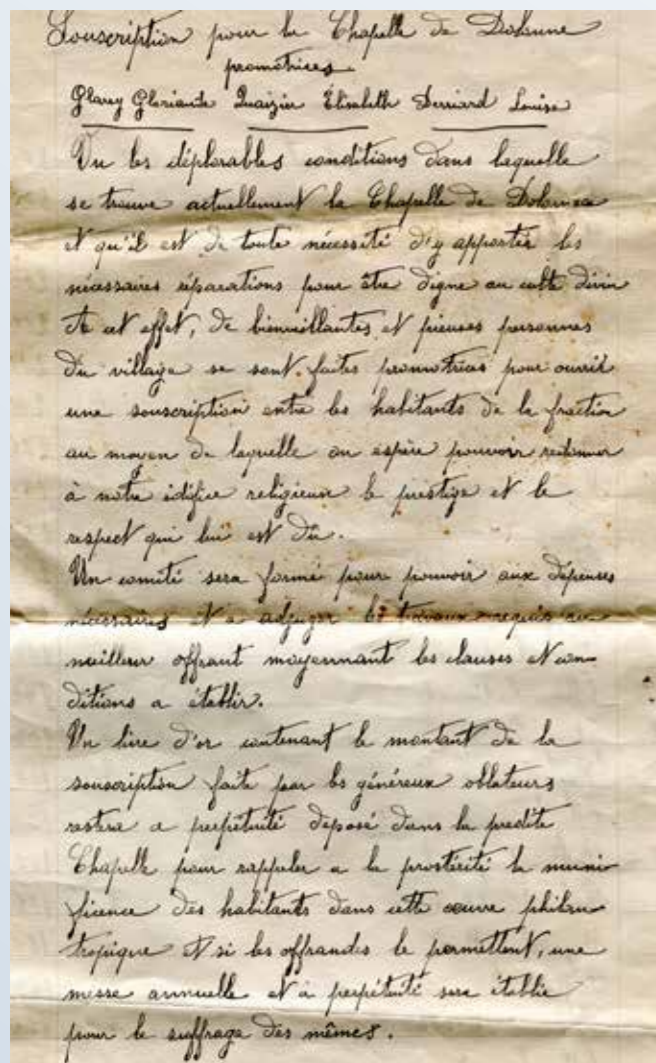 Souscription pour la Chapelle de Dolonne
promotrices
Glarey Gloriande Quaizier Élisabeth Derriard Louise
Vu les déplorables conditions dans laquelle
se trouve actuellement la Chapelle de Dolonne
et qu'il est de toute nécessité d'y apporter les
nécessaires réparations pour être digne au culte divin
A cet effet, de bienveillantes et pieuses personnes
du village se sont faites promotrices pour ouvrir
une souscription entre les habitants de la fraction
au moyen de laquelle on espère pouvoir redonner
à notre édifice religieux le prestige et le
respect qui lui est dû.
Un comité sera formé pour pouvoir aux dépenses
nécessaires et a adjuger les travaux requis au
meilleur offrant moyennant les clauses et con
ditions a établir.
Un livre d'or contenant le montant de la
souscription faite par les généreux oblateurs
restera a perpétuité déposé dans la predite
Chapelle pour rappeler a la prostérité la muni
ficence des habitants dans cette œuvre philan
tropique et si les offrandes le permettent, une
messe annuelle et à perpétuité sera établie
pour le suffrage des mêmes.